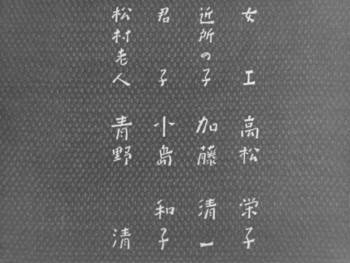 女工 高松栄子
近所の子 加藤清一
君子 小島和子
松村老人 青野清